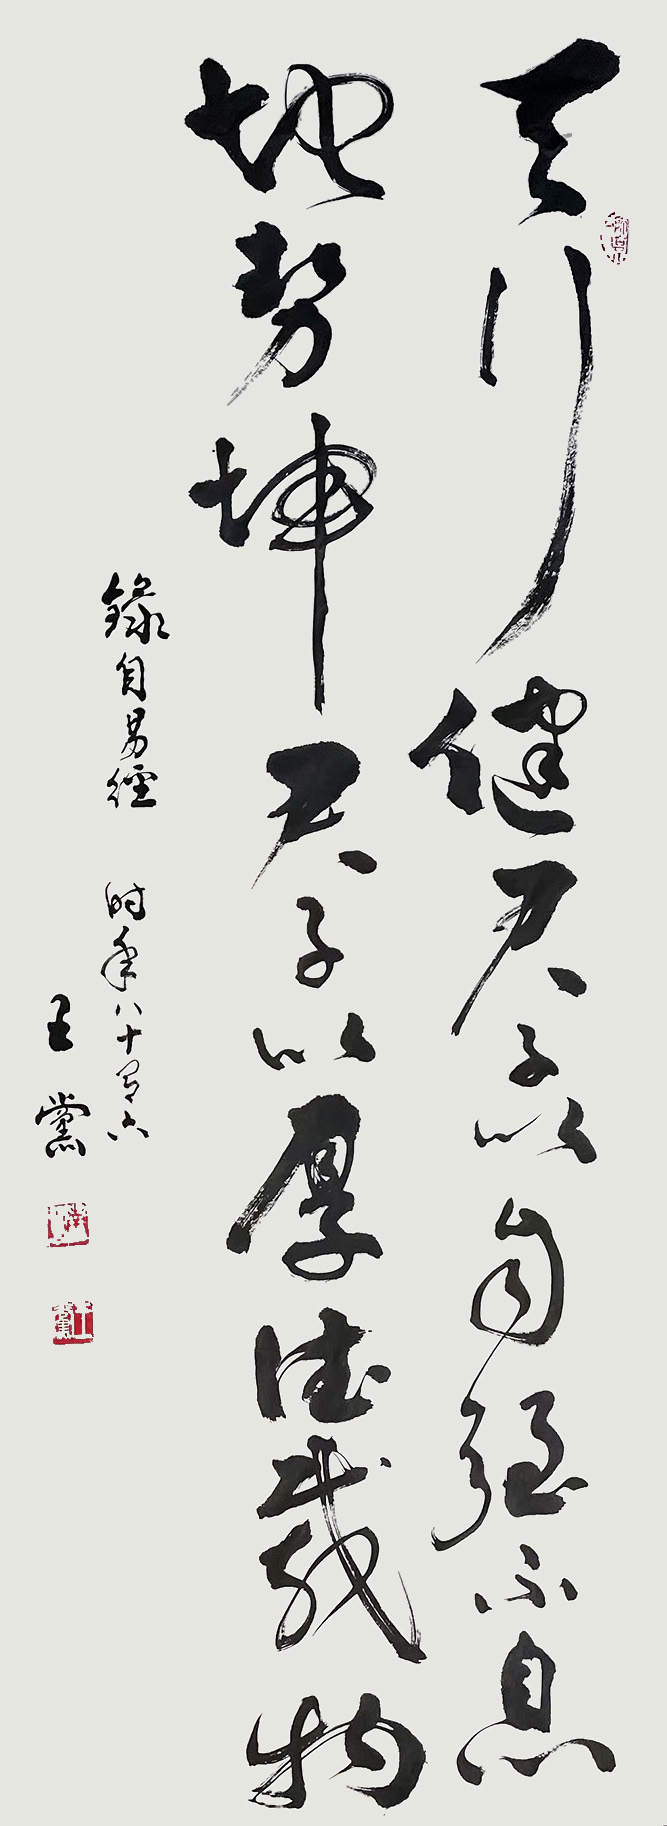 天行健君子以自强不息
地势坤君子以厚德载物
錄自易經 时年八十有六
王黨